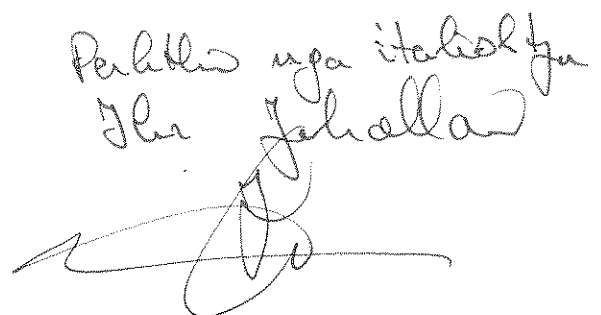 Perktheu nga italishtja
Ilir Jakollari